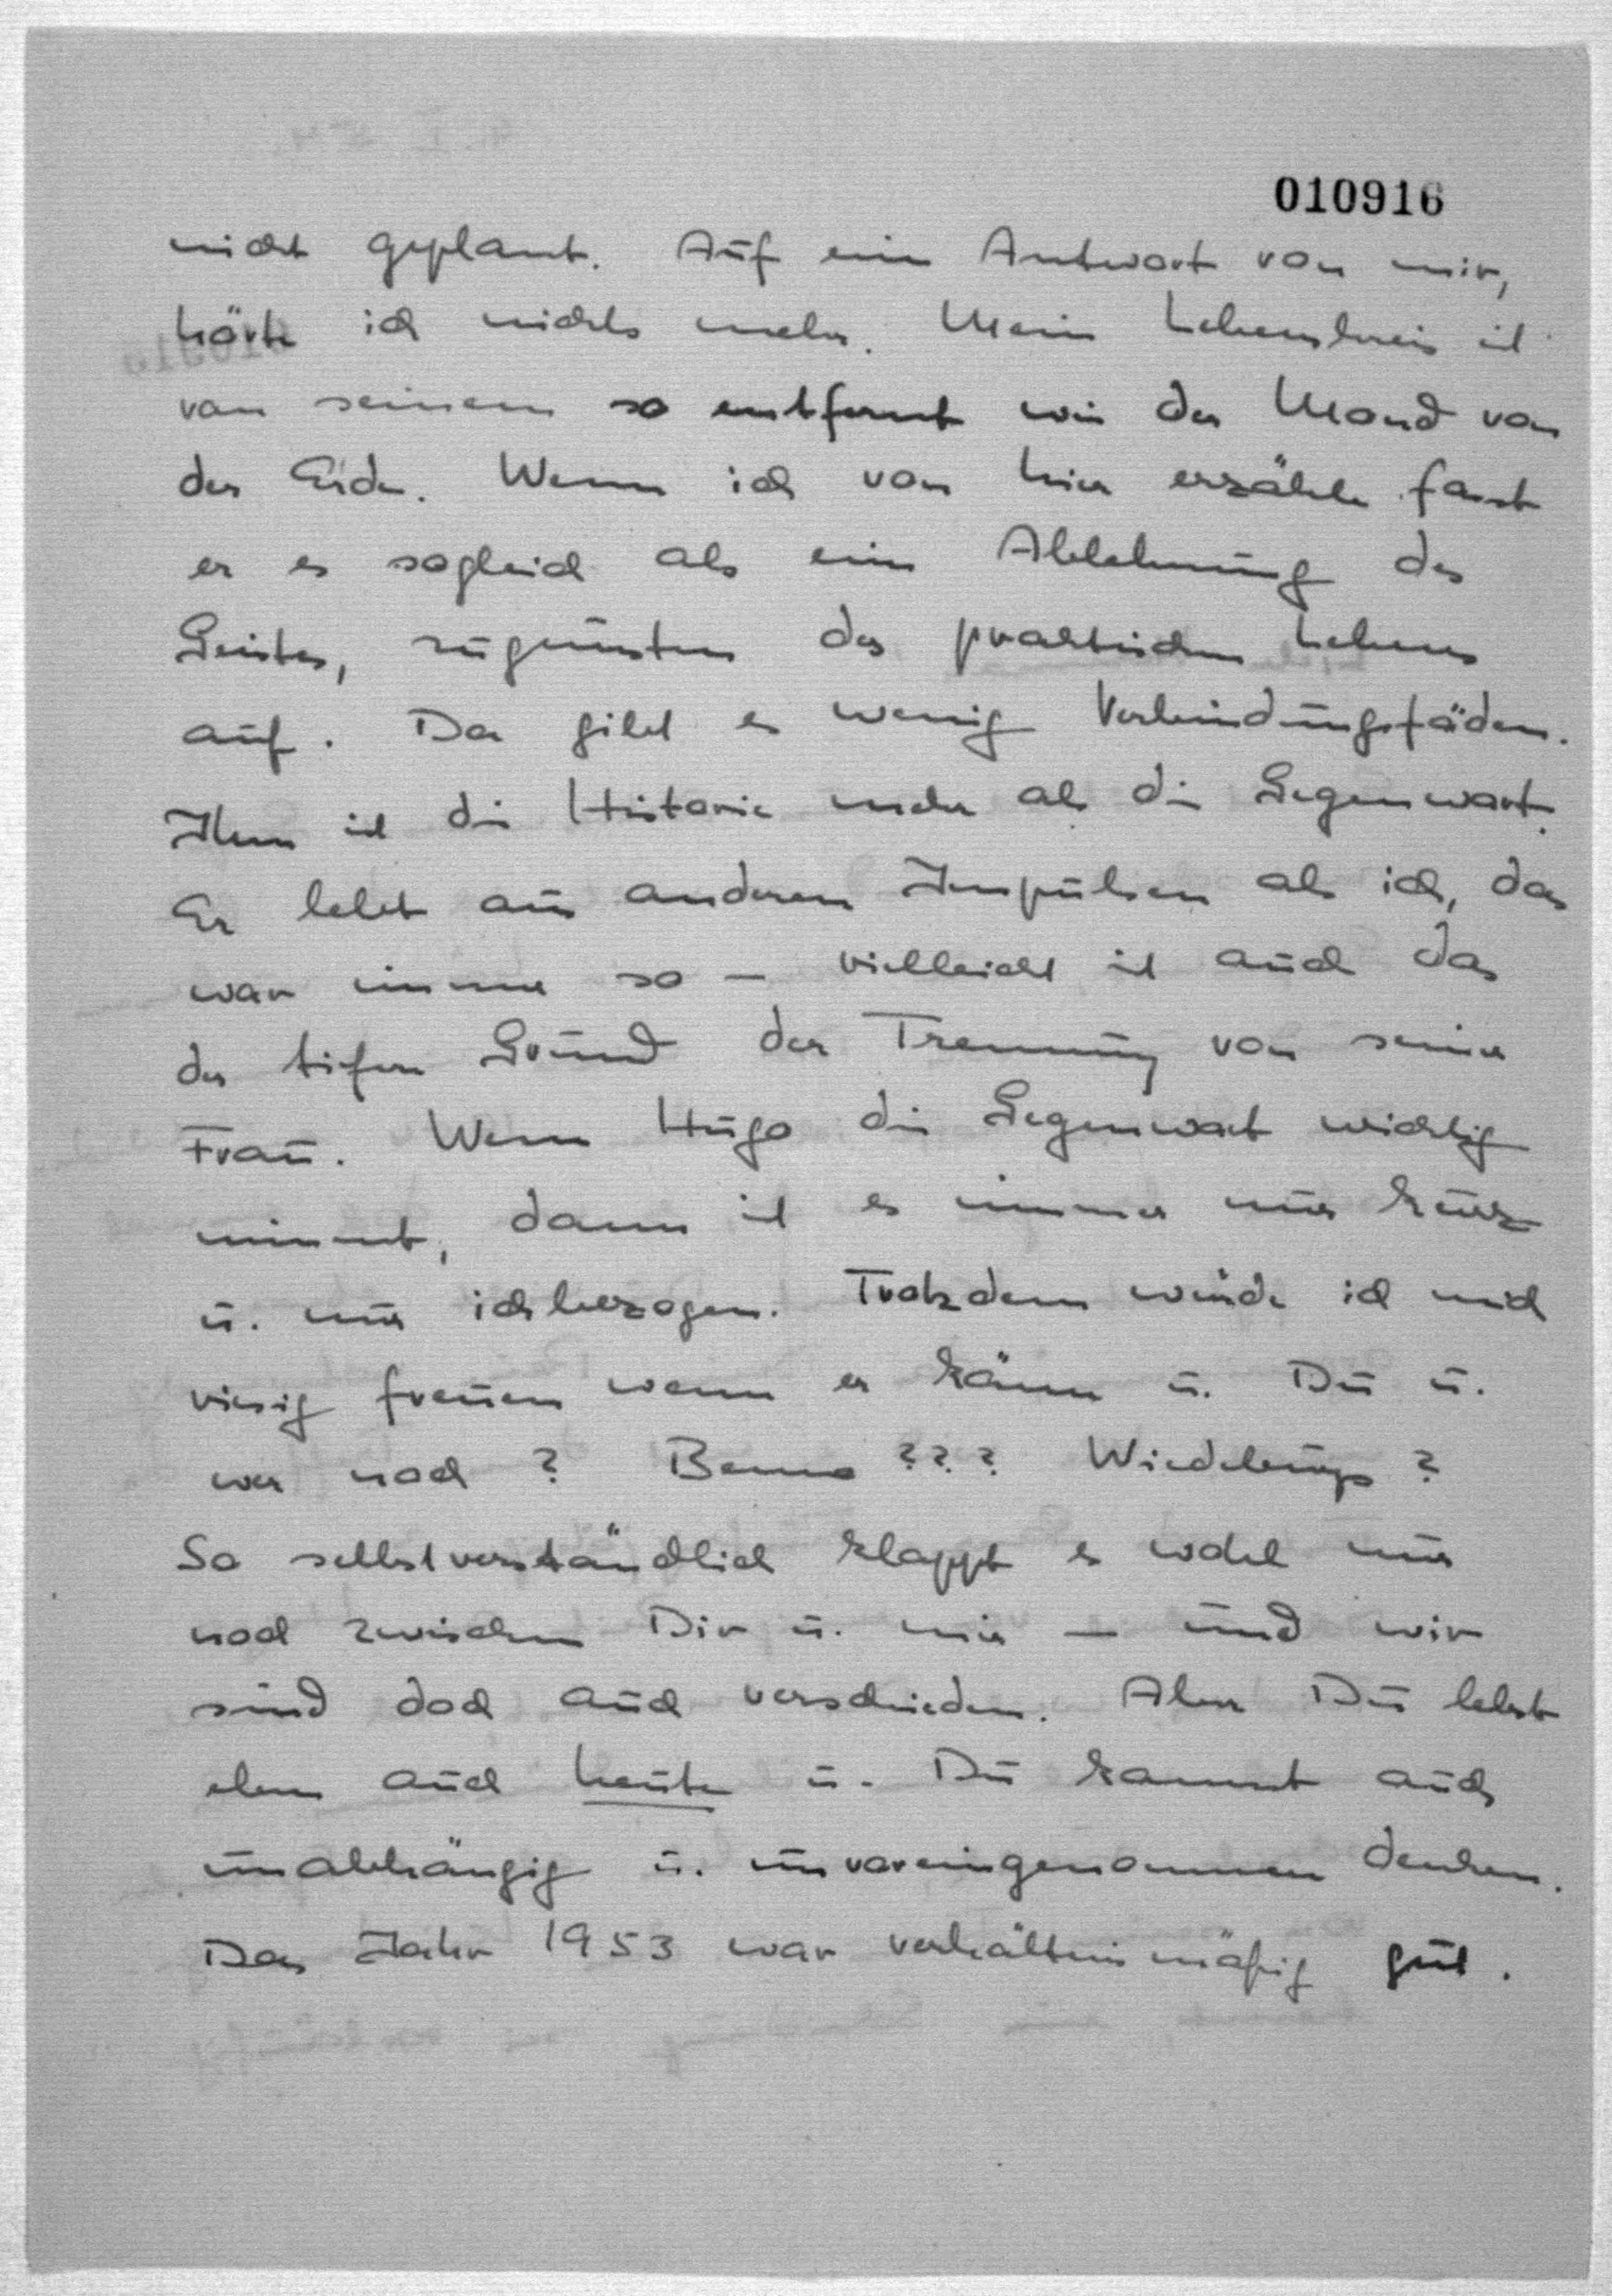 010916
nicht geplant. Auf eine Antwort von mir,
hörte ich nichts mehr. Mein Lebenskreis ist
von seinem so entfernt wie der Mond von
der Erde. Wenn ich von hier erzähle fasst
er es sogleich als eine Ablehnung des
Geistes, zugunsten des praktischen Lebens
auf. Da gibt es wenig Verbindungsfäden.
Ihm ist die Historie mehr als die Gegenwart.
Er lebt aus anderen Impulsen als ich, das
war immer so – vielleicht ist auch das
der tiefere Grund der Trennung von seiner
Frau. Wenn Hugo die Gegenwart wichtig
nimmt, dann ist es immer nur kurz
u. nur ichbezogen. Trotzdem würde ich mich
riesig freuen wenn er käme u. Du u.
wer noch? Benno??? Wiedebugs?
So selbstverständlich klappt es wohl nur
noch zwischen Dir u. mir – und wir
sind doch auch verschieden. Aber Du lebst
eben auch heute u. Du kannst auch
unabhängig u. unvoreingenommen denken.
Das Jahr 1953 war verhältnismäßig gut.